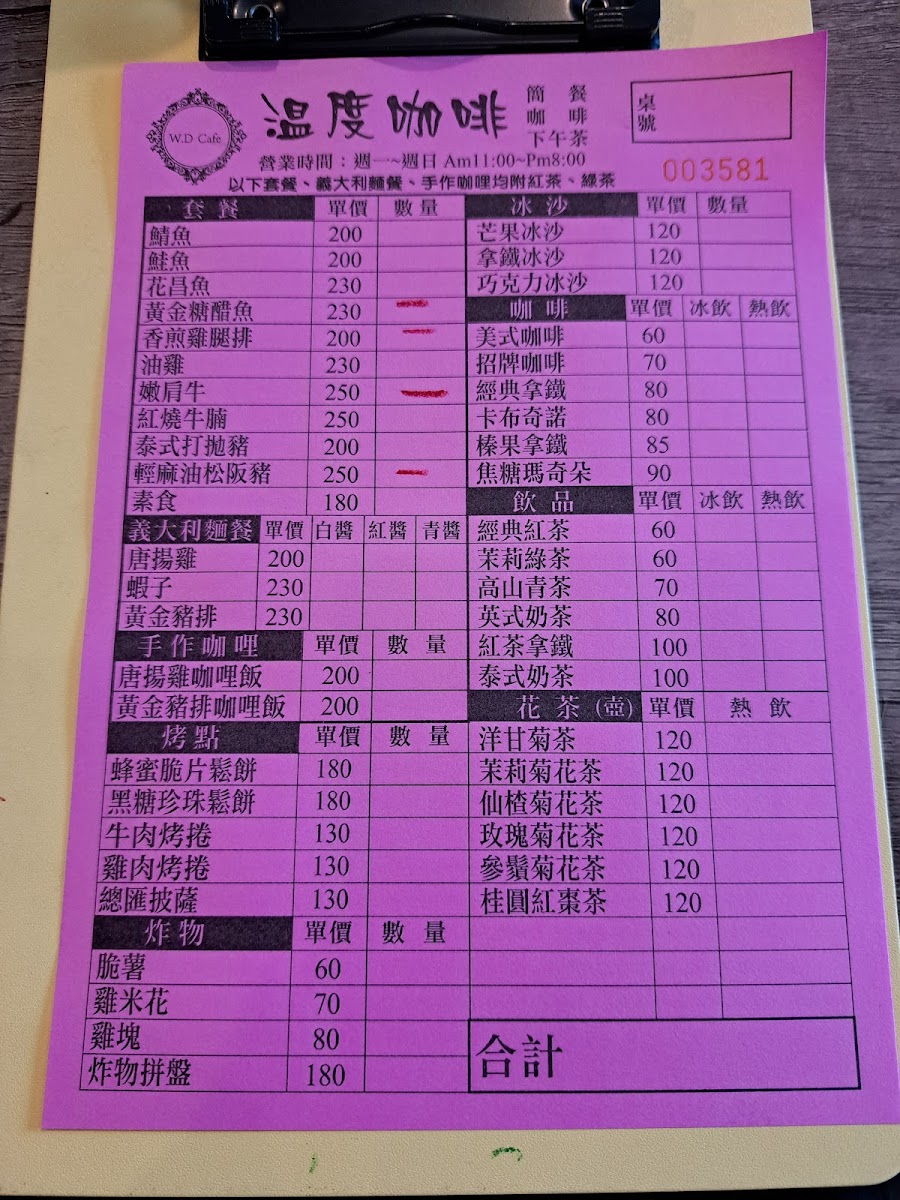 W.D Cafe
溫度咖啡
簡餐
咖啡
下午茶
桌號
營業時間：週一~週日 Am11:00~Pm8:00
003581
以下套餐、義大利麵餐、手作咖哩均附紅茶、綠茶
套餐 單價 數量
鯖魚 200
鮭魚 200
花昌魚 230
黃金糖醋魚 230
香煎雞腿排 200
油雞 230
嫩肩牛 250
紅燒牛腩 250
泰式打拋豬 200
輕麻油松阪豬 250
素食 180
義大利麵餐 單價 白醬 紅醬 青醬
唐揚雞 200
蝦子 230
黃金豬排 230
手作咖哩 單價 數量
唐揚雞咖哩飯 200
黃金豬排咖哩飯 200
烤點 單價 數量
蜂蜜脆片鬆餅 180
黑糖珍珠鬆餅 180
牛肉烤捲 130
雞肉烤捲 130
總匯披薩 130
炸物 單價 數量
脆薯 60
雞米花 70
雞塊 80
炸物拼盤 180
冰沙 單價 數量
芒果冰沙 120
拿鐵冰沙 120
巧克力冰沙 120
咖啡 單價 冰飲 熱飲
美式咖啡 60
招牌咖啡 70
經典拿鐵 80
卡布奇諾 80
榛果拿鐵 85
焦糖瑪奇朵 90
飲品 單價 冰飲 熱飲
經典紅茶 60
茉莉綠茶 60
高山青茶 70
英式奶茶 80
紅茶拿鐵 100
泰式奶茶 100
花茶(壺) 單價 熱飲
洋甘菊茶 120
茉莉菊花茶 120
仙楂菊花茶 120
玫瑰菊花茶 120
參鬚菊花茶 120
桂圓紅棗茶 120
合計